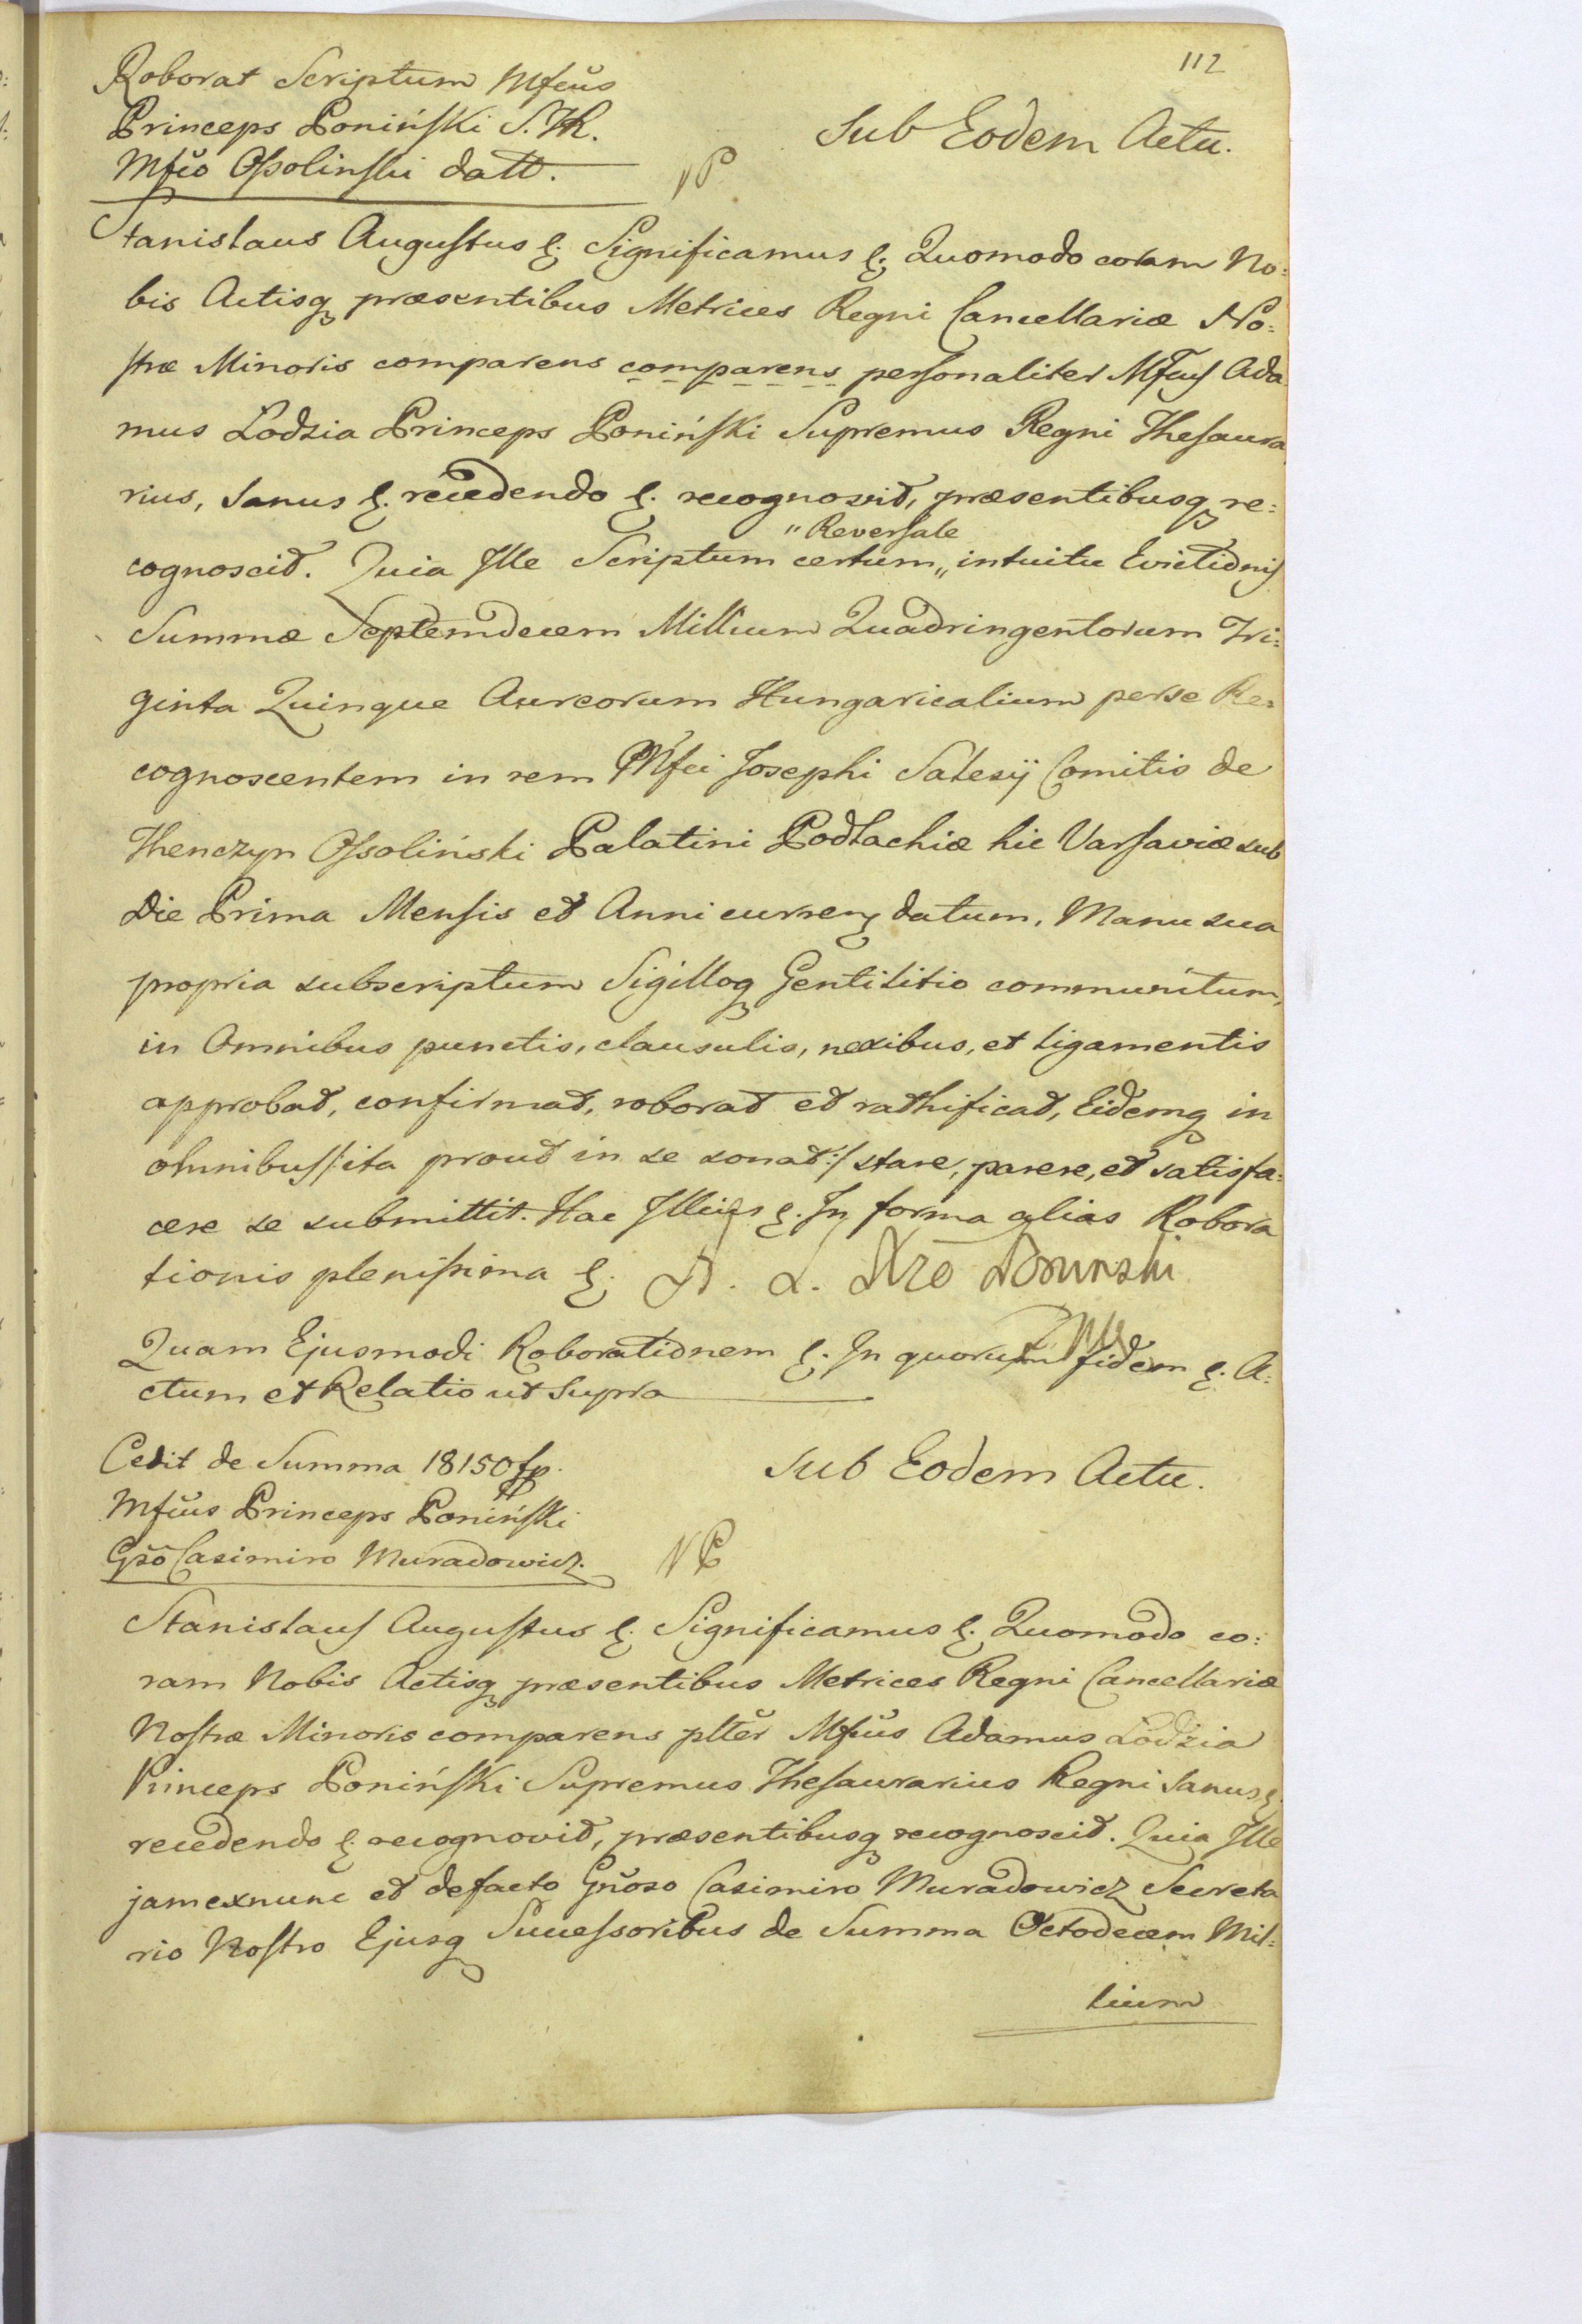 112
Roborat Scriptum Mfcus
Princeps Poniński S.Th.
Mfco Ossolinski datt.
Sub Eodem Actu.
NP
Stanislaus Augustus &. Significamus &. Quomodo coram No:
bis Actisq præsentibus Metrices Regni Cancellariæ No:
stræ Minoris comparens comparens personaliter Mfcus Ada
mus Lodzia Princeps Poniński Supremus Regni Thesaura
rius, Sanus &. recedendo &. recognovit, præsentibusq re:
cognoscit. Quia Ille Scriptum certum „ intuitu Evictionis
„ Reversale
Summæ Septemdecem Millium Quadringentorum Tri:
ginta Quinque Aureorum Hungaricalium perse Re:
cognoscentem in rem Mfci Josephi Salesij Comitis de
Thenczyn Ossoliński Palatini Podlachiæ hic Varsaviæ sub
Die Prima Mensis et Anni curren datum, Manu sua
propria subscriptum Sigilloq Gentilitio communitum,
in Omnibus punctis, clausulis, nexibus, et ligamentis
approbat, confirmat, roborat et rathificat, Eidemq in
omnibus /: ita prout in se sonat :/ stare, parere, et satisfa:
cere se submittit. Hac Illius &. In forma alias Robora
tionis plenissima &. A. L. Poninski
Quam Ejusmodi Roborationem &. In quorum fidem &. A:
ctum et Relatio ut Supra
Cedit de Summa 18150 fp.
Mfcus Princeps Poniński
Gso Casimiro Muradowicz.
Sub Eodem Actu.
NP
Stanislaus Augustus &. Significamus &. Quomodo co:
ram Nobis Actisq præsentibus Metrices Regni Cancellariæ
Nostræ Minoris comparens plter Mfcus Adamus Lodzia
Princeps Poniński Supremus Thesaurarius Regni Sanus &
recedendo &. recognovit, præsentibusq recognoscit. Quia Ille
jamexnunc et defacto Gnoso Casimiro Muradowicz Secreta
rio Nostro Ejusq Successoribus de Summa Octodecem Mil:
lium